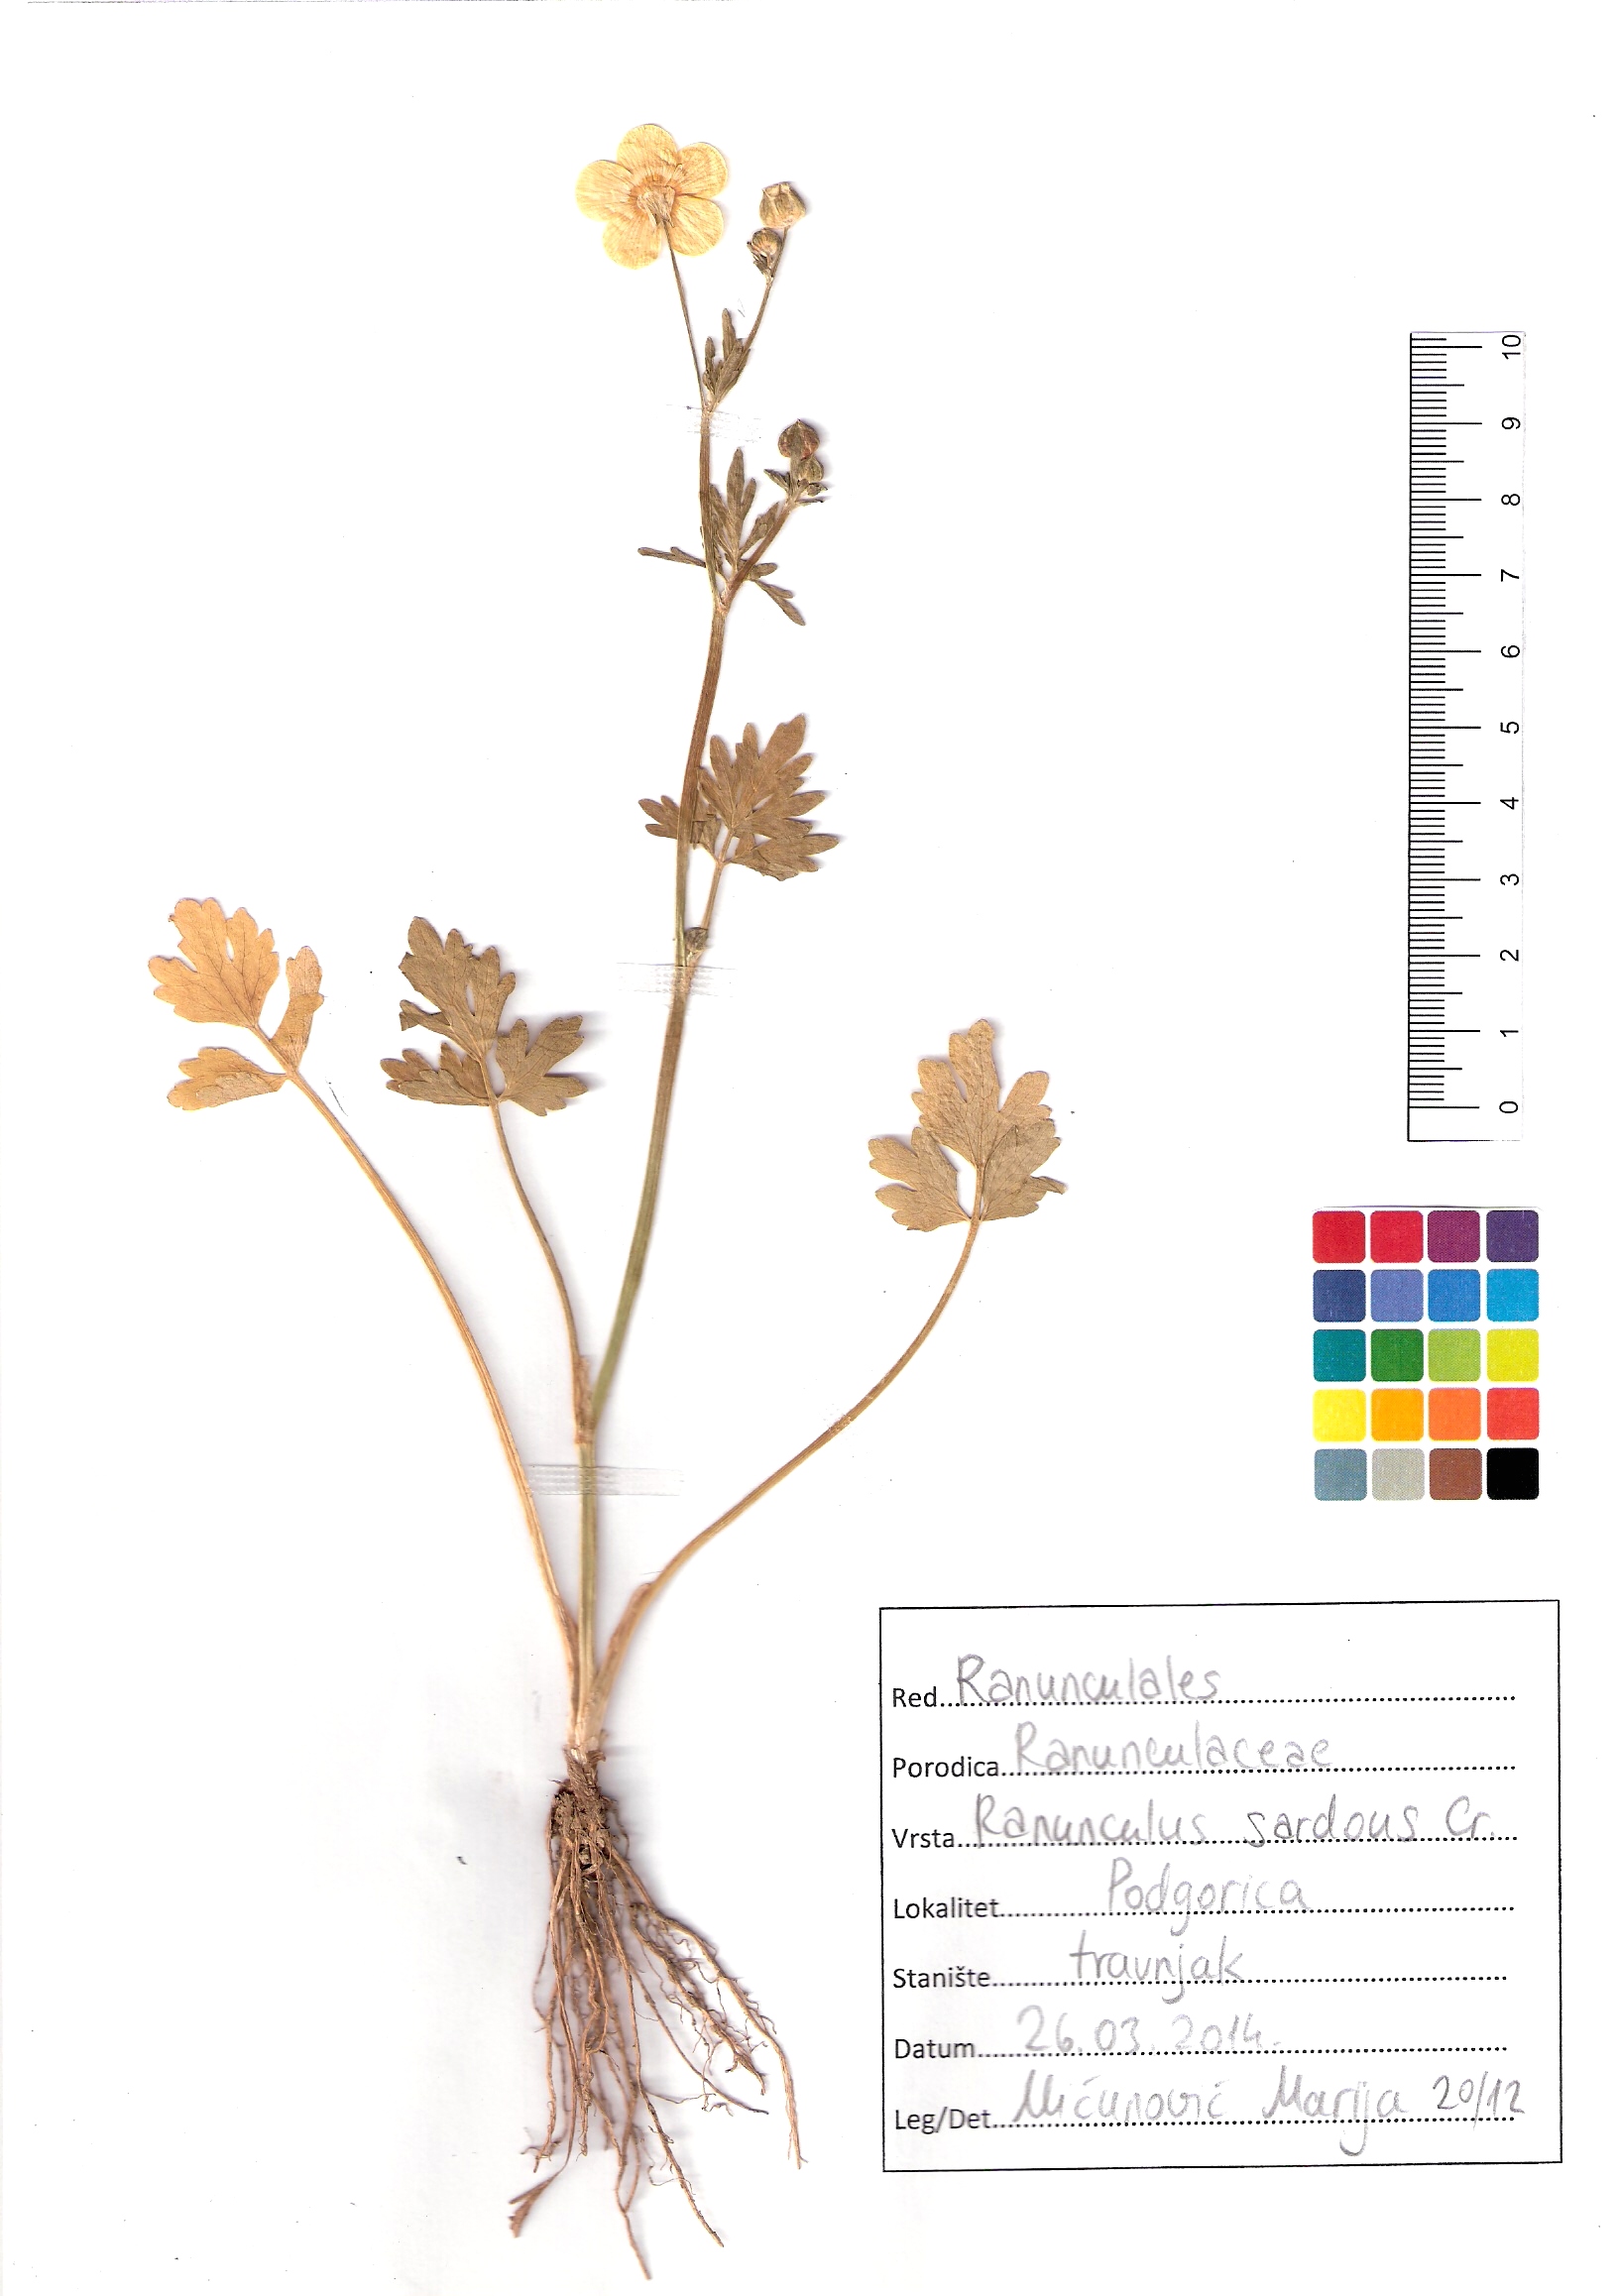 10
9
8
7
6
5
4
3
2
1
0
Red Ranunculales
Porodica Ranunculaceae
Vrsta Ranunculus sardous Cr.
Lokalitet Podgorica
Stanište travnjak
Datum 26.03.2014.
Leg/Det Mićunović Marija 20/12